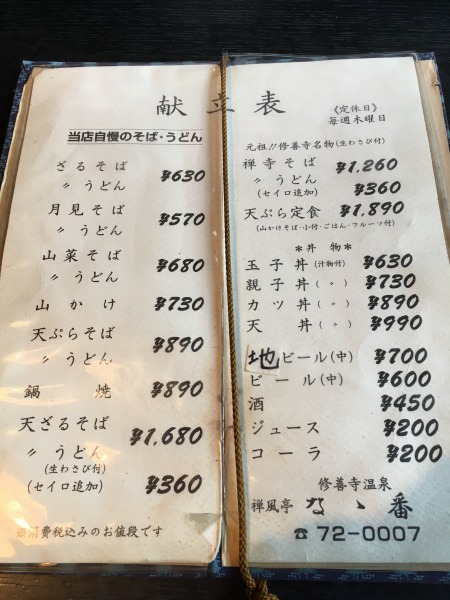 献立表
当店自慢のそば・うどん
ざるそば ¥630
〃 うどん
月見そば ¥570
〃 うどん
山菜そば ¥680
〃 うどん
山かけ ¥730
天ぷらそば ¥890
〃 うどん
鍋焼 ¥890
天ざるそば ¥1,680
〃 うどん
(生わさび付)
(セイロ追加) ¥360
※消費税込みのお値段です
《定休日》
毎週木曜日
元祖!!修善寺名物(生わさび付)
禅寺そば ¥1,260
〃 うどん
(セイロ追加) ¥360
天ぷら定食 ¥1,890
(山かけそば・小付・ごはん・フルーツ付)
*丼物*
玉子丼(汁物付) ¥630
親子丼(〃) ¥730
カツ丼(〃) ¥890
天丼(〃) ¥990
地ビール(中) ¥700
ビール(中) ¥600
酒 ¥450
ジュース ¥200
コーラ ¥200
修善寺温泉
禅風亭 なゝ番
☎72-0007